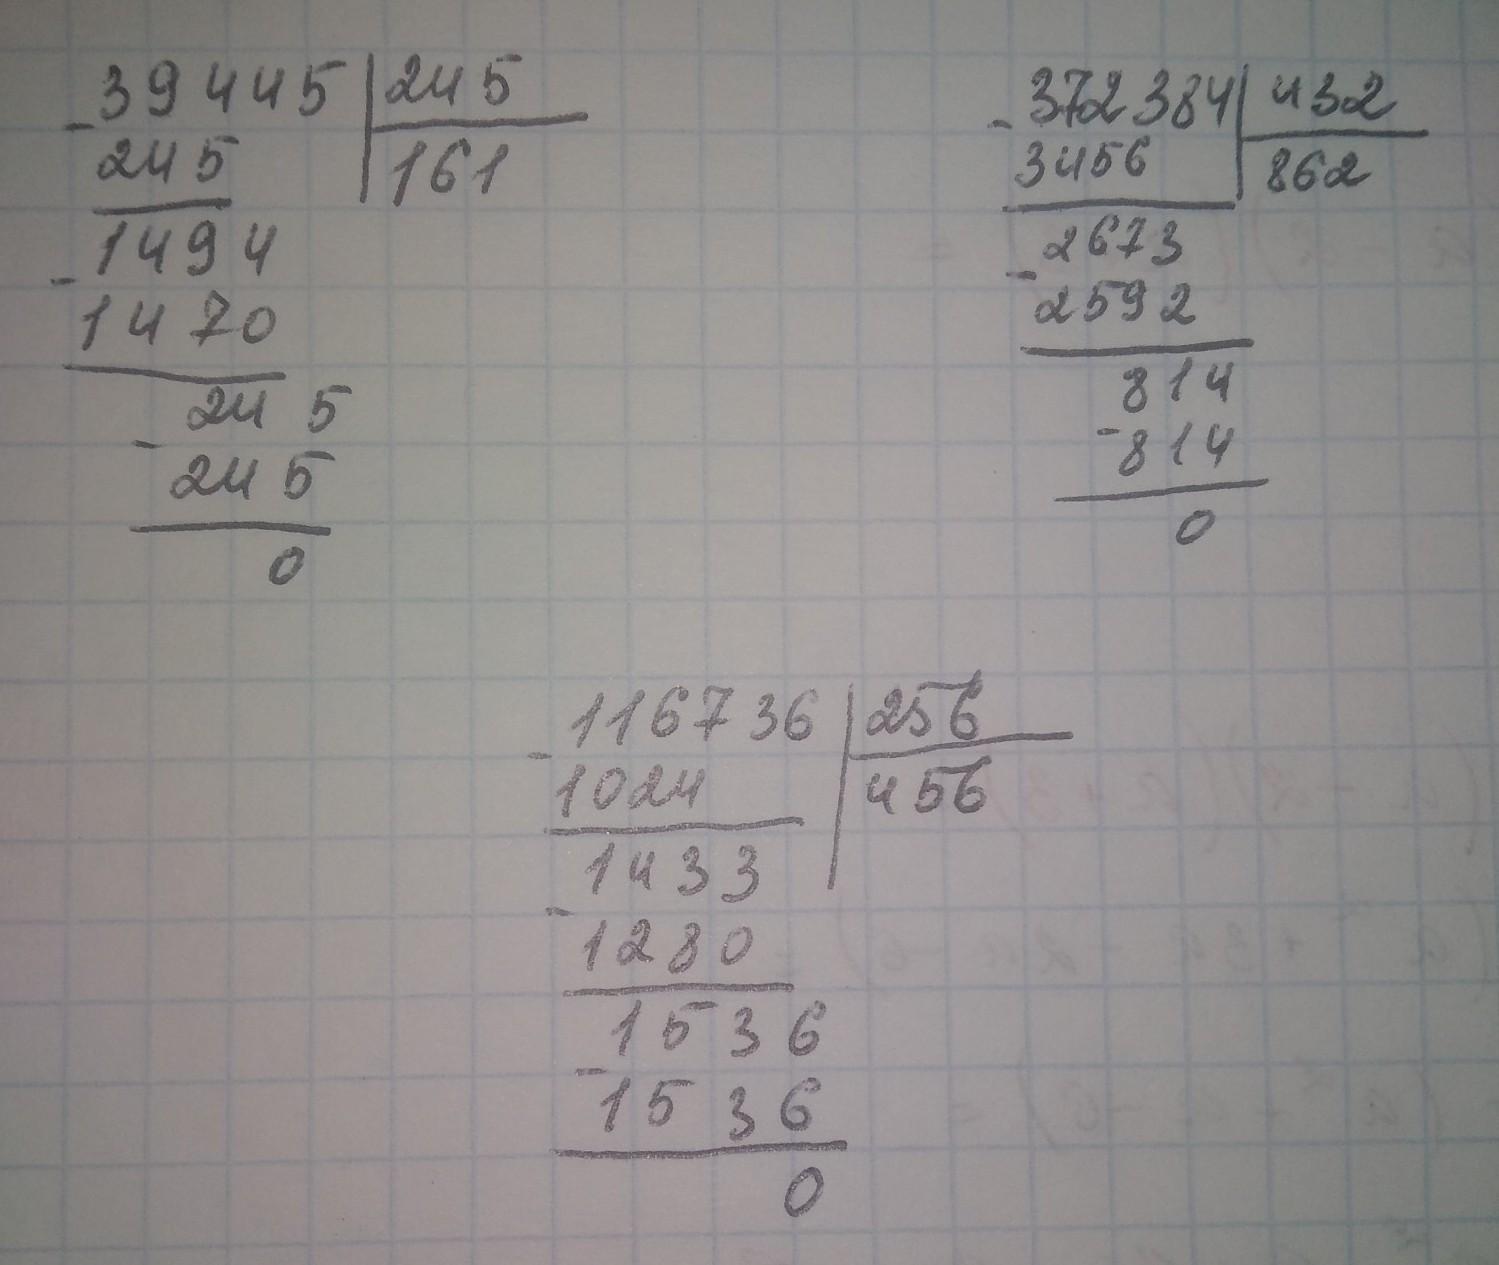 39445 245
245 161
1494
1470
245
245
0
372384 432
3456 862
2673
2592
814
814
0
116736 256
1024 456
1433
1280
1536
1536
0